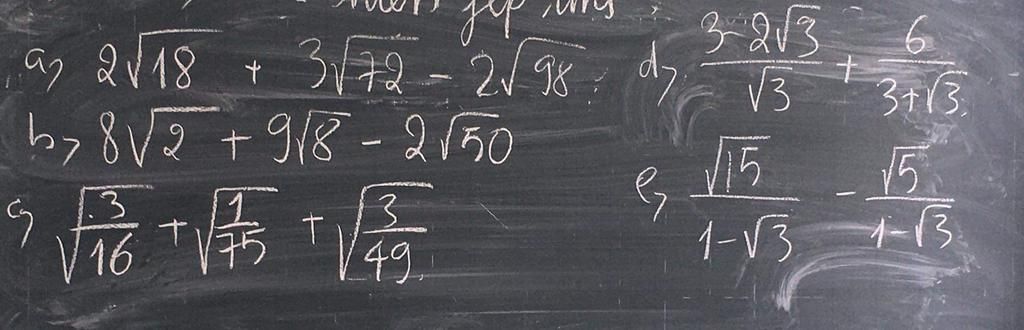 a) 2√18 + 3√72 - 2√98
b) 8√2 + 9√8 - 2√50
c) √(3/16) + √(1/75) + √(3/49)
d) (3-2√3)/√3 + 6/(3+√3)
e) √15/(1-√3) - √5/(1-√3)